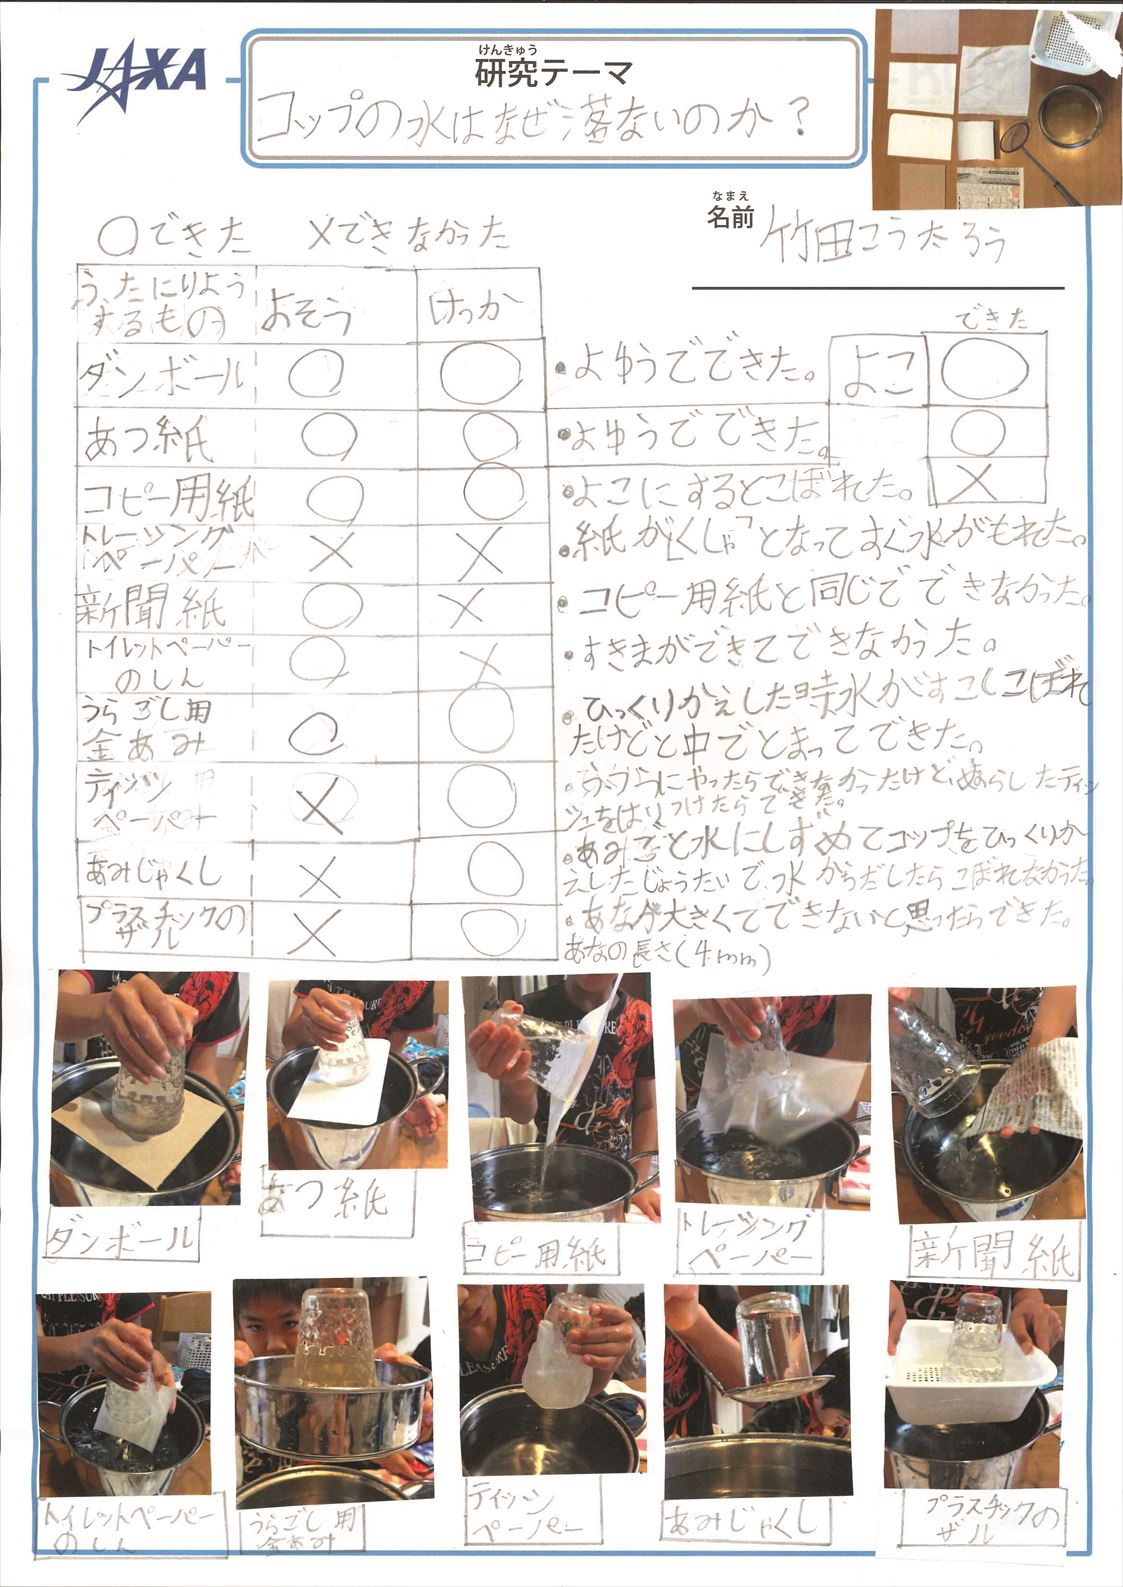 JAXA
けんきゅう
研究テーマ
コップの水はなぜ落ないのか?
なまえ
名前 竹田こうたろう
○できた ×できなかった
ふたにりよう
するもの よそう けっか
できた
ダンボール ○ ○ ・よゆうでできた。 よこ ○
あつ紙 ○ ○ ・よゆうでできた。 ○
コピー用紙 ○ ○ ・よこにするとこぼれた。 ×
トレーシング
ペーパー × × ・紙が「くしゃ」となってすぐ水がもれた。
新聞紙 ○ × ・コピー用紙と同じでできなかった。
トイレットペーパー
のしん ○ × ・すきまができてできなかった。
うらごし用
金あみ ○ ○ ・ひっくりかえした時水がすこしこぼれ
たけどと中でとまってできた。
ティッシュ
ペーパー × ○ ・ふつうにやったらできなかったけど、ぬらしたティッ
シュをはりつけたらできた。
あみじゃくし × ○ ・あみごと水にしずめてコップをひっくりか
えしたじょうたいで、水からだしたらこぼれなかった。
プラスチックの
ザル × ○ ・あなが大きくてできないと思ったらできた。
あなの長さ(4mm)
ダンボール
あつ紙
コピー用紙
トレーシング
ペーパー
新聞紙
トイレットペーパー
のしん
うらごし用
金あみ
ティッシュ
ペーパー
あみじゃくし
プラスチックの
ザル